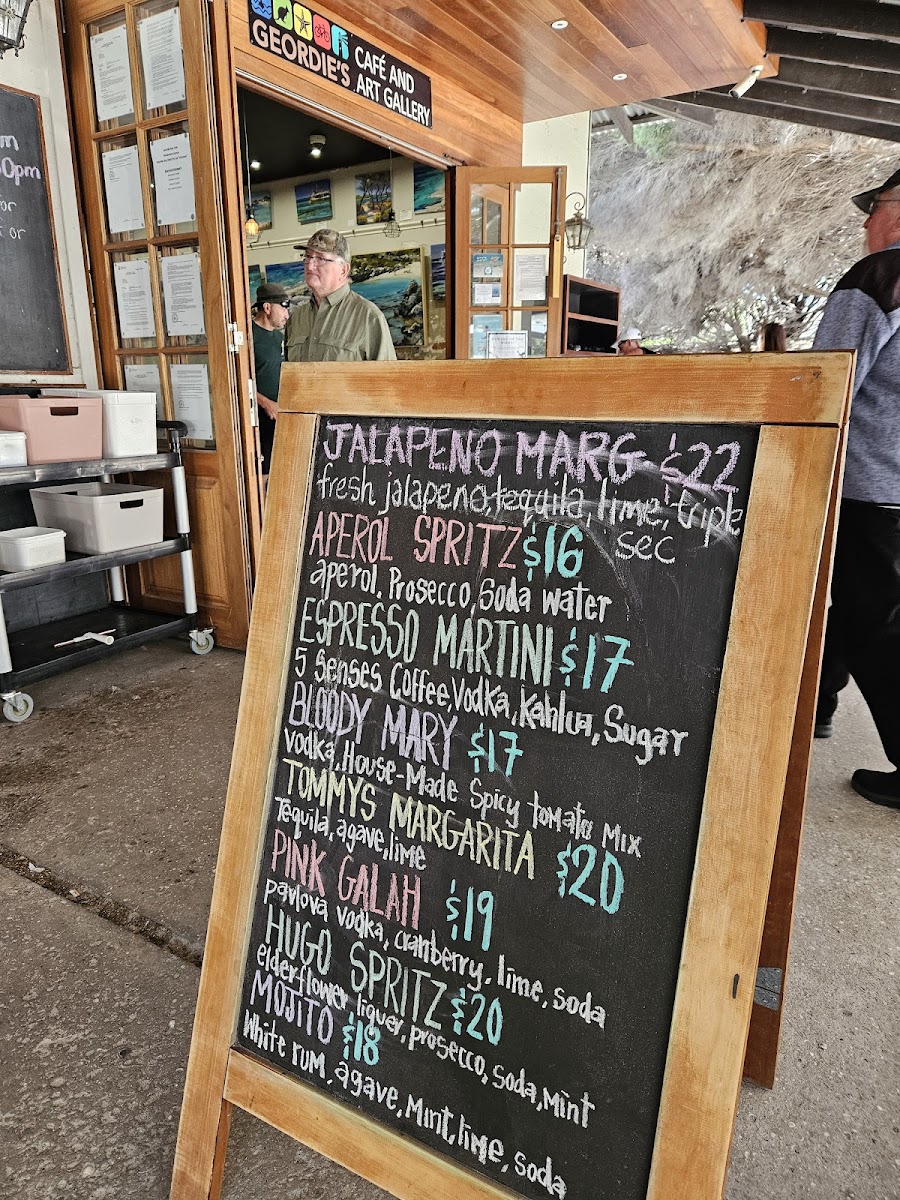 GEORDIE'S CAFÉ AND
ART GALLERY
0pm
or
JALAPENO MARG $22
fresh jalapeno, tequila, lime, triple
sec
APEROL SPRITZ $16
aperol, Prosecco, Soda water
ESPRESSO MARTINI $17
5 Senses Coffee, Vodka, Kahlua, Sugar
BLOODY MARY $17
Vodka, House-Made Spicy tomato Mix
TOMMYS MARGARITA $20
Tequila, agave, lime
PINK GALAH $19
pavlova vodka, cranberry, lime, soda
HUGO SPRITZ $20
elderflower liquer, prosecco, soda, mint
MOJITO $18
White rum, agave, Mint, lime, soda